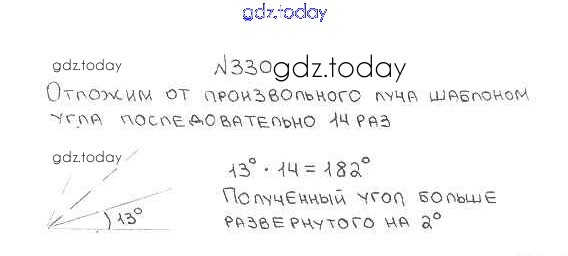 gdz.today
gdz.today
№330
gdz.today
Отложим от произвольного луча шаблоном
угла последовательно 14 раз
gdz.today
13° · 14 = 182°
Полученный угол больше
развернутого на 2°
13°